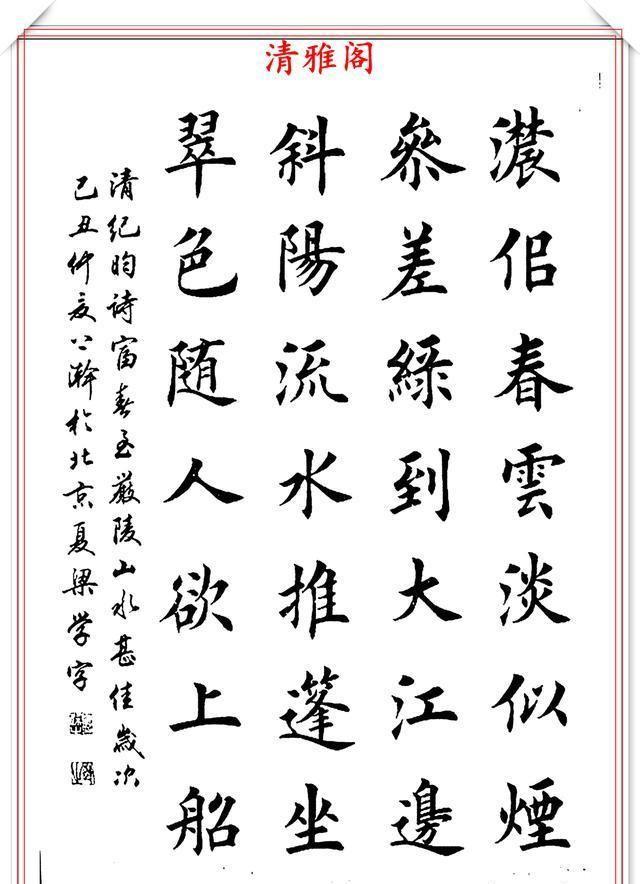 清雅阁
濃佀春雲淡似煙
參差綠到大江邊
斜陽流水推蓬坐
翠色随人欲上船
清紀昀詩富春至嚴陵山水甚佳歲次
己丑仲夏公瀚於北京夏梁学字